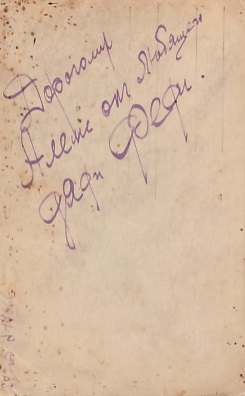 Дорогому
Алеше от любящего
дяди Феди.